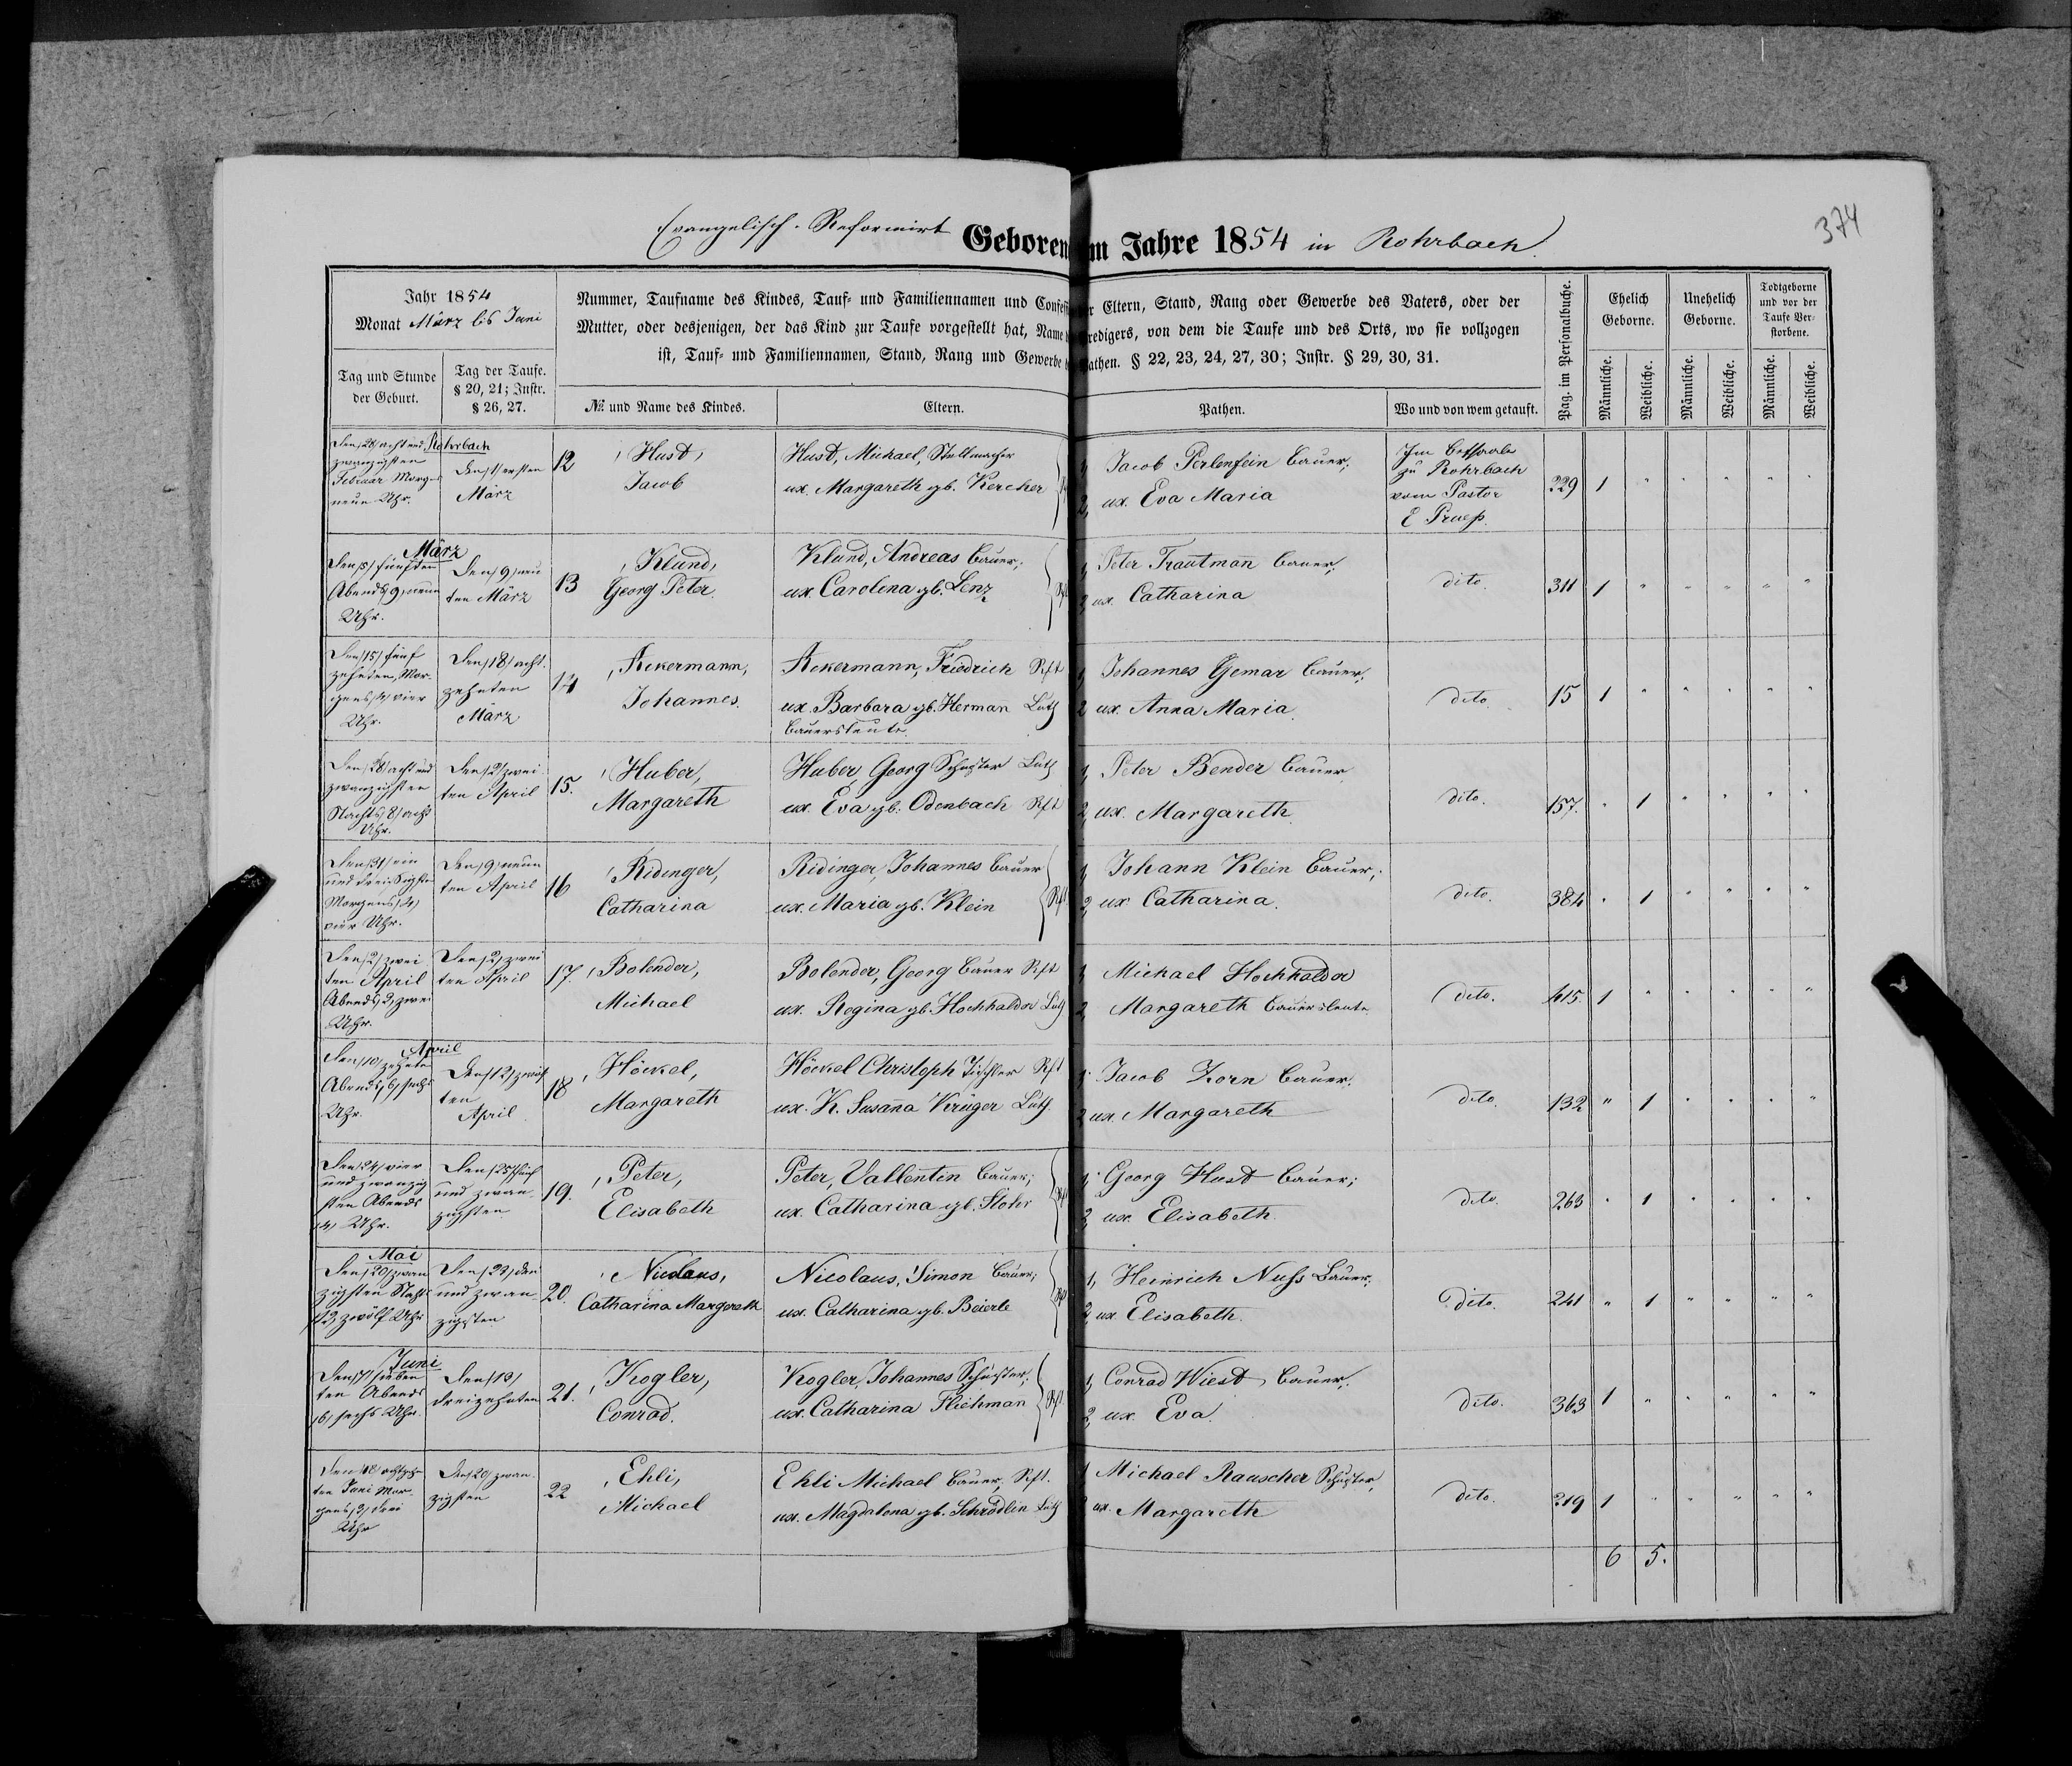 374
Evangelisch-Reformirt Geboren im Jahre 1854 in Rohrbach.
Jahr 1854
Monat März bis Juni
Tag und Stunde
der Geburt.
Tag der Taufe.
§ 20, 21; Instr.
§ 26, 27.
Nummer, Taufname des Kindes, Tauf- und Familiennamen und Confess der Eltern, Stand, Rang oder Gewerbe des Vaters, oder der
Mutter, oder desjenigen, der das Kind zur Taufe vorgestellt hat, Name Predigers, von dem die Taufe und des Orts, wo sie vollzogen
ist, Tauf- und Familiennamen, Stand, Rang und Gewerbe Pathen. § 22, 23, 24, 27, 30; Instr. § 29, 30, 31.
№ und Name des Kindes.
Eltern.
Pathen.
Wo und von wem getauft.
Pag. im Personalbuche.
Ehelich
Geborne.
Unehelich
Geborne.
Todtgeborne
und vor der
Taufe Ver-
storbene.
Männliche.
Weibliche.
Männliche.
Weibliche.
Männliche.
Weibliche.
Den 28 acht und
zwanzigsten
Februar Morgs
neun Uhr.
Rohrbach
Den 1 ersten
März
12
Hust,
Jacob
Hust, Michael, Stellmacher
ux. Margareth gb. Kercher
1, Jacob Perlenfein Bauer;
2, ux. Eva Maria
Im Bethsaale
zu Rohrbach
vom Pastor
229 1 " " " " "
März
Den 5 fünften
Abends 9, neun
Uhr.
Den 9, neun
ten März
13
Klund,
Georg Peter.
Klund, Andreas Bauer;
ux. Carolina gb. Lenz
Rft
1, Peter Trautmañ Bauer;
2, ux. Catharina
dito.
311 1 " " " " "
Den 15 fünf
zehnten, Mor-
gens 4 vier
Uhr.
Den 18 acht-
zehnten
März
14
Ackermann,
Johannes.
Ackermann, Friedrich Rft
ux. Barbara gb. Herman Luth
Bauersleute.
1, Johannes Gemar Bauer;
2 ux. Anna Maria.
dito.
15 1 " " " " "
Den 28 acht und
zwanzigsten
Nachts 8 acht
Uhr.
Den 2 zwei
ten April
15.
Huber,
Margareth
Huber, Georg Schuster Luth
ux. Eva gb. Odenbach Rft
1, Peter Bender Bauer
2, ux. Margareth.
dito.
157. " 1 " " " "
Den 31 ein
und dreissigsten
Morgens 4,
vier Uhr.
Den 9, neun
ten April
16
Ridinger,
Catharina
Ridinger, Johannes Bauer
ux. Maria gb. Klein
Rft
1, Johann Klein Bauer;
2, ux. Catharina.
dito.
384 " 1 " " " "
Den 2 zwei
ten April
Abends 2, zwei
Uhr.
Den 2, zwei
ten April
17.
Bolender,
Michael
Bolender, Georg Bauer Rft
ux. Regina gb. Hochhalder Luth
1, Michael Hochhalder
2, Margareth Bauersleute.
dito.
415. 1 " " " " "
April
Den 10 zehnten
Abends 6, sechs
Uhr.
Den 12 zwölf
ten
April
18
Höckel,
Margareth
Höckel Christoph Tischler Rft
ux. K. Susaña Krüger Luth.
1, Jacob Zorn Bauer.
2 ux. Margareth
dito.
132 " 1 " " " "
Den 24 vier
und zwanzig
sten Abends
4, Uhr.
Den 25 fünf
und zwan-
zigsten
19.
Peter,
Elisabeth
Peter, Vallentin Bauer;
ux. Catharina gb. Stohr
1, Georg Hust Bauer;
2, ux. Elisabeth.
dito.
263 " 1 " " " "
Mai
Den 20 zwan
zigsten Nachts
12, zwölf Uhr
Den 23, drei
und zwan-
zigsten
20.
Nicolaus,
Catharina Margareth
Nicolaus, Simon Bauer;
ux. Catharina gb. Beierle
1, Heinrich Nuss Bauer;
2, ux. Elisabeth.
dito.
241 " 1 " " " "
Juni
Den 7 sieben
ten Abends
6, sechs Uhr.
Den 13
dreizehnten
21.
Kogler,
Conrad.
Kogler, Johannes Schuster;
ux. Catharina Flichman
Rft.
1, Conrad Wiest, Bauer;
2 ux. Eva.
dito.
363 1 " " " " "
Den 18 achtzehn
ten Juni Mor-
gens 3 drei
Uhr
Den 20 zwan-
zigsten
22
Ehli,
Michael
Ehli Michael Bauer, Rft.
ux. Magdalena gb. Schrödlin Luth
1 Michael Rauscher Schuster,
2 ux. Margareth
dito.
219 1 " " " " "
6 5.